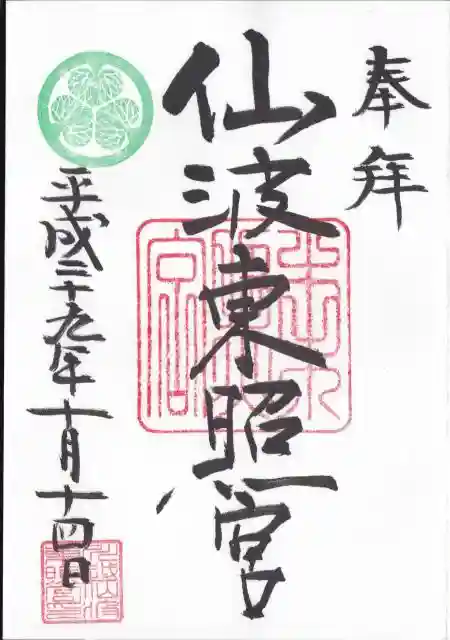 奉拝
仙波東照宮
平成二十九年十月十四日